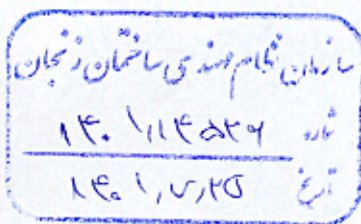 سازمان نظام مهندسی ساختمان زنجان
شماره ۱۴۰۱/۱۱۴۵۳۶
تاریخ ۱۴۰۱/۷/۲۵